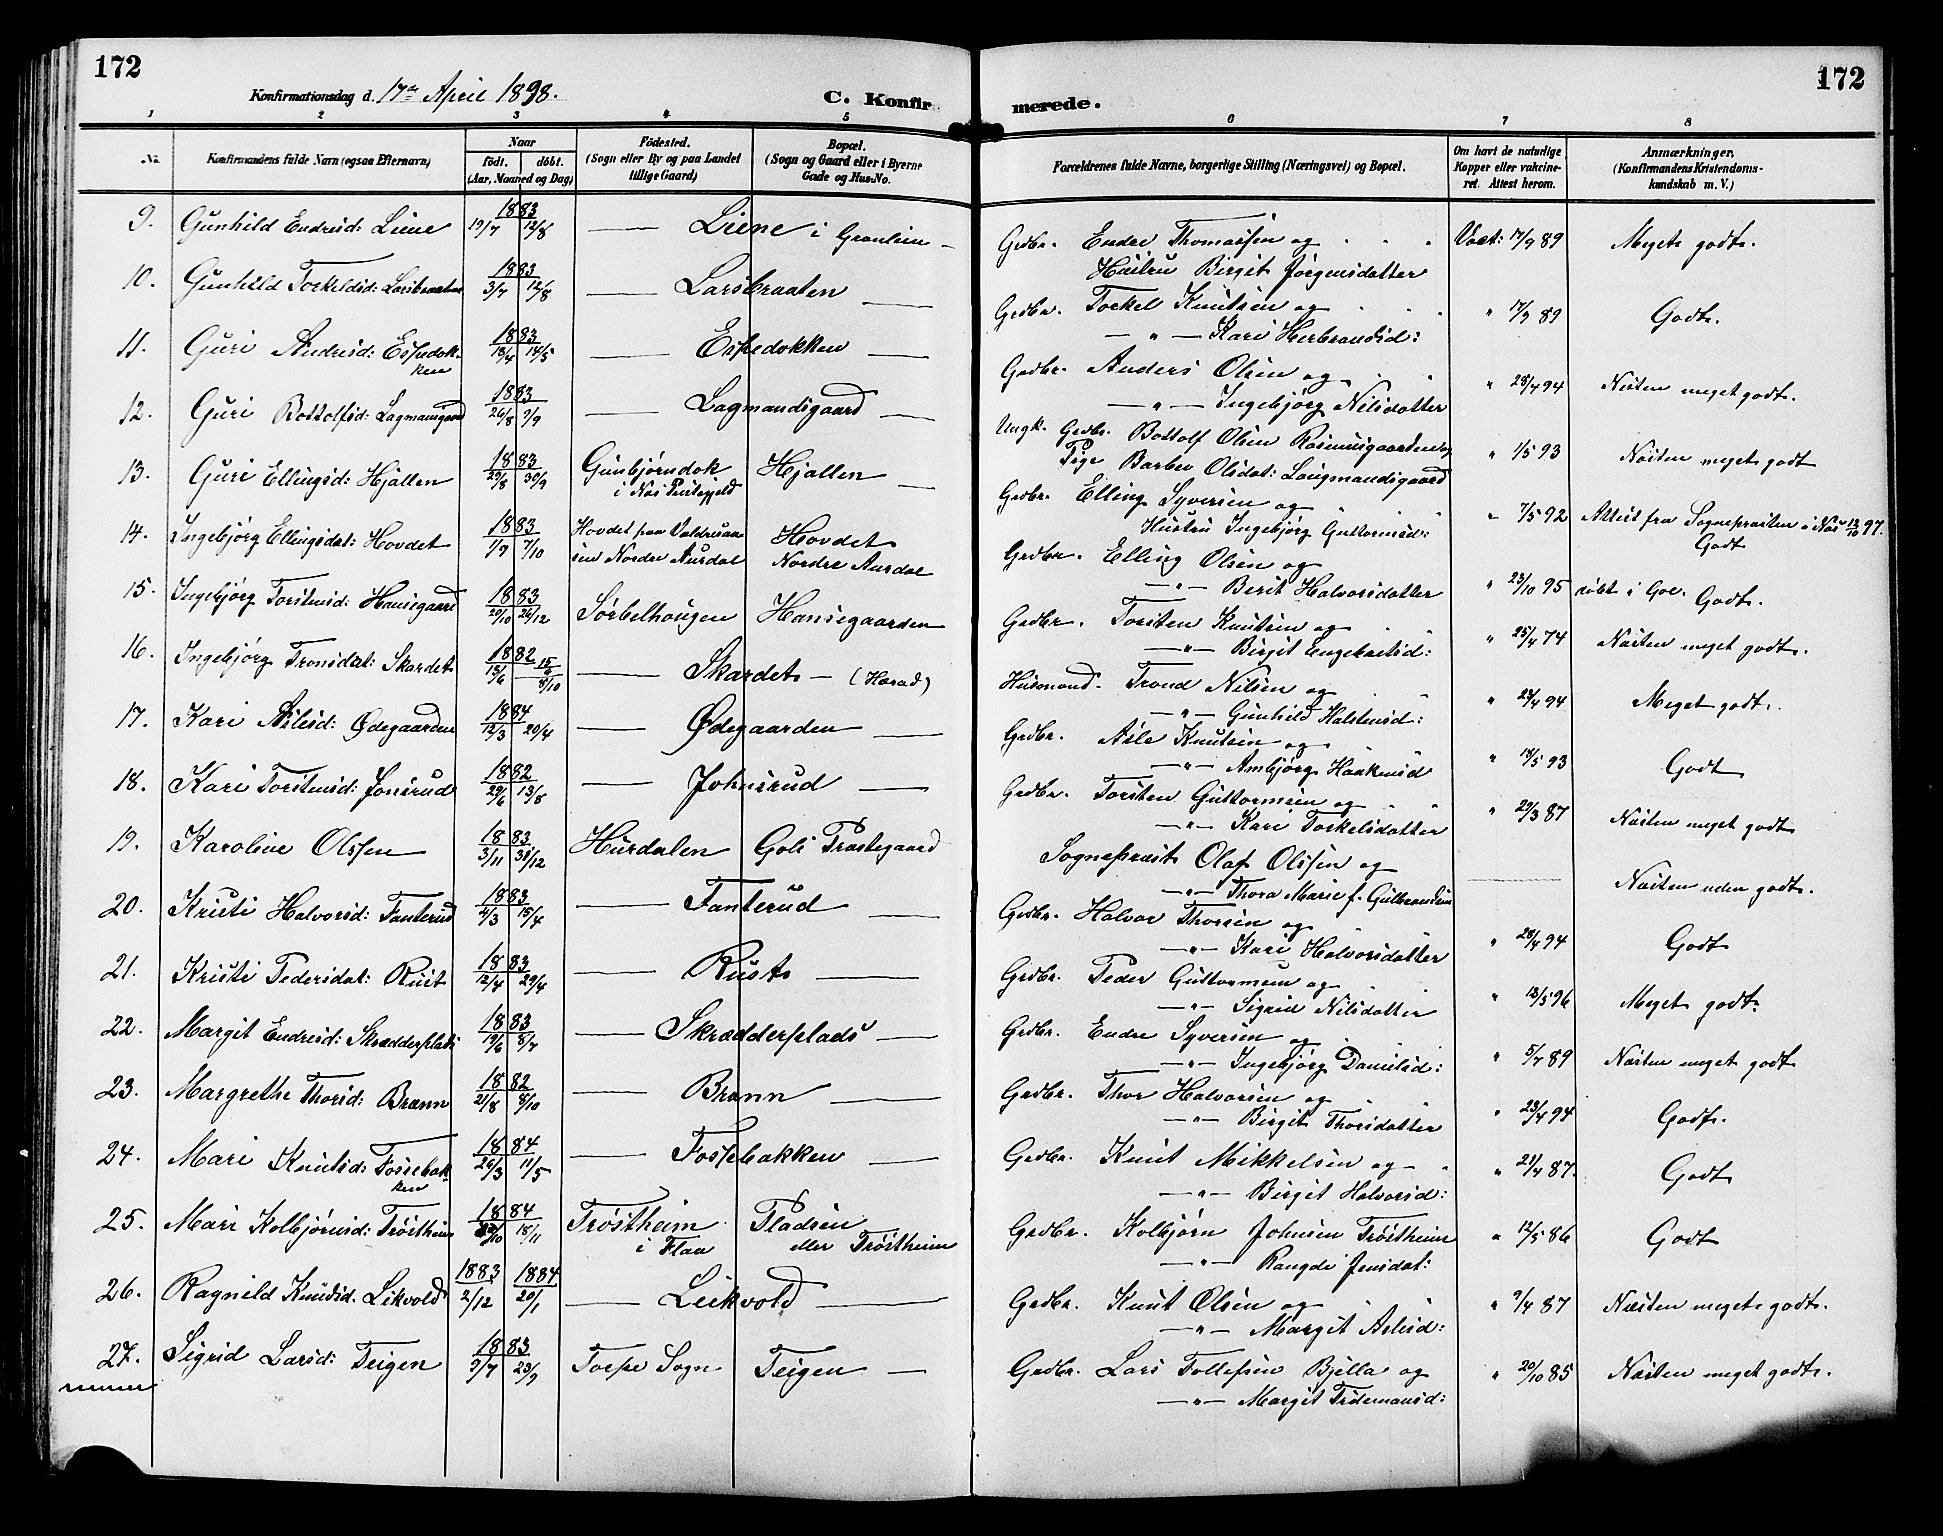 172
Konfirmationsdag d. 17de April 1898.
C. Konfirmerede.
172
1 2 3 4 5 6 7 8
No.
Konfirmandens fulde Navn (ogsaa Efternavn)
Naar
födt. döbt.
(Aar, Maaned og Dag)
Födested.
(Sogn eller By og paa Landet
tillige Gaard)
Bopæl.
(Sogn og Gaard eller i Byerne
Gade og Hus-No.
Forældrenes fulde Navne, borgerlige Stilling (Næringsvei) og Bopæl.
Om havt de naturlige
Kopper eller vakcine-
ret. Attest herom.
Anmærkninger.
(Konfirmandens Kristendoms-
kundskab m. V.)
9. Gunhild Endresd: Liene 1883 19/7 12/8 — Liene i Grønlien — Grdbr. Endre Thomassen og Vact: 17/9 89 Meget godt.
Hustru Birgit Jørgensdatter
10. Gunhild Torkeldsd: Larsbraaten 1883 3/7 12/8 — Larsbraaten — Grdbr. Torkel Knutsen og " 17/9 89 Godt.
— " — Kari Herbrandsd:
11. Guri Andersd: Espedok-
ken 1883 13/4 14/5 — Espedokken — Grdbr. Anders Olsen og " 28/4 94 Næsten meget godt.
— " — Ingebjørg Nilsdatter
12. Guri Bottolfsd: Lagmansgaard 1883 26/8 9/9 — Lagmandsgaard — Ungk. Grdbr. Bottolf Olsen Rasmusgaarden og " 1/5 93 Næsten meget godt
Pige Barbro Olsdat: Laugmandsgaard
13. Guri Ellingsd: Hjallen 1883 29/8 30/9 Gunbjørndok
i Næs Prestegjeld Hjallen — Grdbr. Elling Syversen og " 7/5 92 Attest fra Sognepræsten i Næs 12/10 97.
Hustru Ingebjørg Guttormsd: Godt
14. Ingebjørg Ellingsdat: Hovdet 1883 1/9 7/10 Hovdet paa Valdresaa-
sen Nordre Aurdal Hovdet
Nordre Aurdal Grdbr. Elling Olsen og " 23/10 95 døbt i Gol. Godt.
— " — Berit Halvorsdatter
15. Ingebjørg Torstensd: Hansegaard 1883 20/10 26/12 Sørbelhaugen Hansegaarden Grdbr. Torsten Knutsen og " 25/4 74 Næsten meget godt.
— " — Birgit Engebretsd:
16. Ingebjørg Tronsdat: Skardet 1882 13/6 15/6 8/10 — Skardet — (Herad) Husmand. Trond Nilsen og " 24/4 94 Meget godt.
— " — Gunhild Halstensd:
17. Kari Aslesd: Ødegaarden 1884 12/3 20/4 — Ødegaarden — Grdbr. Asle Knutsen og " 18/5 93 Godt
— " — Ambjørg Haakensd
18. Kari Torstensd: Jonsrud 1882 29/6 13/8 — Johnsrud — Grdbr. Torsten Guttormsen og " 29/3 87 Næsten meget godt
— " — Kari Torkelsdatter
19. Karoline Olssen 1883 3/11 31/12 Hurdalen Gols Præstegaard Sognepræst Olaf Olssen og — Næsten uden godt.
— " — Thora Marie f. Gulbrandsen
20. Kristi Halvorsd: Fanterud 1883 4/3 15/4 — Fanterud — Grdbr. Halvor Thorsen og " 28/4 94 Godt
— " — Kari Halvorsdatter
21. Kristi Pedersdat: Rust 1883 12/4 29/4 — Rust — Grdbr. Peder Guttormsen og " 13/5 96 Meget godt.
— " — Sigrid Nilsdatter
22. Margit Endresd: Skrædderplads 1883 19/6 8/7 — Skrædderplads — Grdbr. Endre Syversen og " 5/7 89 Næsten meget godt
— " — Ingebjørg Danielsd:
23. Margrethe Thorsd: Brænn 1882 21/8 8/10 — Brænn — Grdbr. Thor Halvorsen og " 23/4 94 Godt.
— " — Birgit Thorsdatter
24. Mari Knutsd: Fossebak-
ken 1884 26/3 11/5 — Fossebakken — Grdbr. Knut Mikkelsen og " 21/4 87. Godt
— " — Birgit Halvorsd:
25. Mari Kolbjørnsd: Trøstheim 1884 18/11 Trøstheim
i Flaa Pladsen
eller Trøstheim Grdbr. Kolbjørn Johnsen Trøstheim " 12/5 86 Godt
— " — Rangdi Jensdat:
26. Ragnild Knudsd. Leikvold 1883 2/12 1884 20/1 — Leikvold — Grdbr. Knut Olsen og " 9/4 87 Næsten meget godt.
— " — Margit Aslesd:
27. Sigrid Larsd: Teigen 1883 9/7 23/9 Torpe Sogn Teigen — Grdbr. Lars Tollefsen Bjella og " 20/10 85 Næsten meget godt.
— " — Margit Tidemansd: